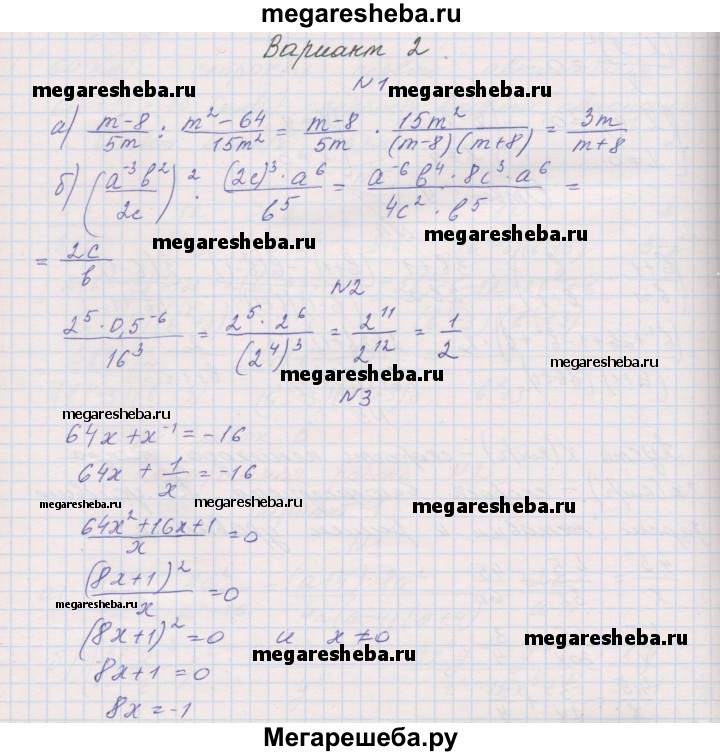 megaresheba.ru
Вариант 2.
megaresheba.ru
№1
megaresheba.ru
а) (m-8)/(5m) : (m²-64)/(15m²) = (m-8)/(5m) · (15m²)/((m-8)(m+8)) = (3m)/(m+8)
б) ((a⁻³b²)/(2c))² · ((2c)³·a⁶)/(b⁵) = (a⁻⁶b⁴·8c³·a⁶)/(4c²·b⁵) =
megaresheba.ru
megaresheba.ru
= (2c)/b
№2
(2⁵·0,5⁻⁶)/(16³) = (2⁵·2⁶)/((2⁴)³) = (2¹¹)/(2¹²) = 1/2
megaresheba.ru
megaresheba.ru
№3
megaresheba.ru
64x+x⁻¹=-16
64x + 1/x = -16
megaresheba.ru
megaresheba.ru
megaresheba.ru
(64x²+16x+1)/x = 0
(8x+1)²/x = 0
megaresheba.ru
(8x+1)²=0 и x≠0
megaresheba.ru
megaresheba.ru
8x+1=0
8x=-1
Мегарешеба.ру